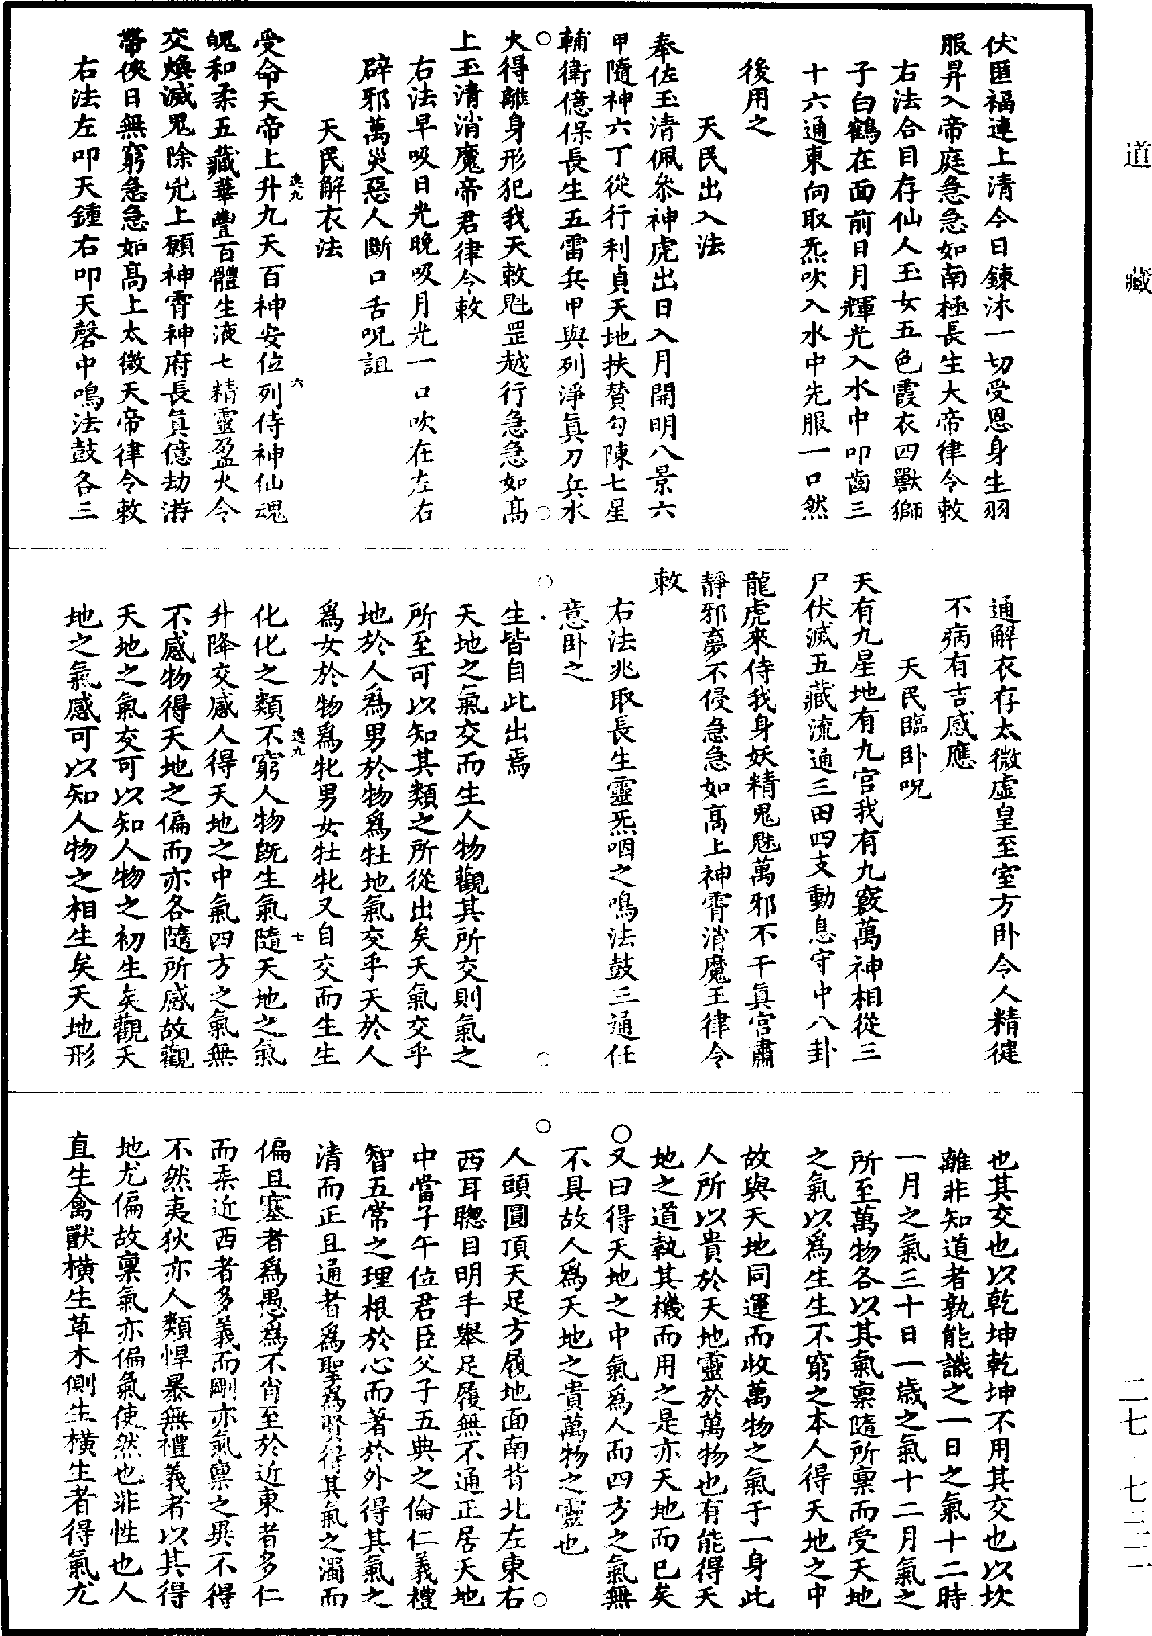 伏匿福連上清今日鍊沐一切受恩身生羽
服昇入帝庭急急如南極長生大帝律令敕
右法合目存仙人玉女五色霞衣四獸獅
子白鶴在面前日月輝光入水中叩齒三
十六通東向取炁吹入水中先服一口然
後用之
天民出入法
奉佐玉清佩參神虎出日入月開明八景六
甲隨神六丁從行利貞天地扶贊勾陳七星
輔衛億保長生五雷兵甲與列淨真刀兵水
火得離身形犯我天敕魁罡越行急急如高
上玉清消魔帝君律令敕
右法早吸日光晚吸月光一口吹在左右
辟邪萬災惡人斷口舌呪詛
天民解衣法
受命天帝上升九天百神安位列侍神仙魂
魄和柔五藏華豐百體生液七精靈盈火令
交煥滅鬼除兇上願神霄神府長真億劫遊
帶俠日無窮急急如高上太微天帝律令敕
右法左叩天鍾右叩天磬中鳴法鼓各三
逸九
六
通解衣存太微虛皇至室方卧令人精徤
不病有吉感應
天民臨卧呪
天有九星地有九宮我有九竅萬神相從三
尸伏滅五藏流通三田四支動息守中八卦
龍虎來侍我身妖精鬼魅萬邪不干真宮肅
靜邪夢不侵急急如高上神霄消魔王律令
敕
右法兆取長生靈炁咽之鳴法鼓三通任
意卧之
生皆自此出焉
天地之氣交而生人物觀其所交則氣之
所至可以知其類之所從出矣天氣交乎
地於人爲男於物爲牡地氣交乎天於人
爲女於物爲牝男女牡牝又自交而生生
化化之類不窮人物旣生氣隨天地之氣
升降交感人得天地之中氣四方之氣無
不感物得天地之偏而亦各隨所感故觀
天地之氣交可以知人物之初生矣觀天
地之氣感可以知人物之相生矣天地形
逸九
七
也其交也以乾坤乾坤不用其交也以坎
離非知道者孰能識之一日之氣十二時
一月之氣三十日一歲之氣十二月氣之
所至萬物各以其氣稟隨所稟而受天地
之氣以爲生生不窮之本人得天地之中
故與天地同運而收萬物之氣于一身此
人所以貴於天地靈於萬物也有能得天
地之道執其機而用之是亦天地而已矣
○又曰得天地之中氣爲人而四方之氣無
不具故人爲天地之貴萬物之靈也
人頭圓頂天足方履地面南背北左東右
西耳聰目明手舉足履無不通正居天地
中當子午位君臣父子五典之倫仁義禮
智五常之理根於心而著於外得其氣之
清而正且通者爲聖爲賢得其氣之濁而
偏且塞者爲愚爲不肖至於近東者多仁
而柔近西者多義而剛亦氣稟之異不得
不然夷狄亦人類悍暴無禮義者以其得
地尤偏故稟氣亦偏氣使然也非性也人
直生禽獸橫生草木側生橫生者得氣尤
道
藏
二七·七三二